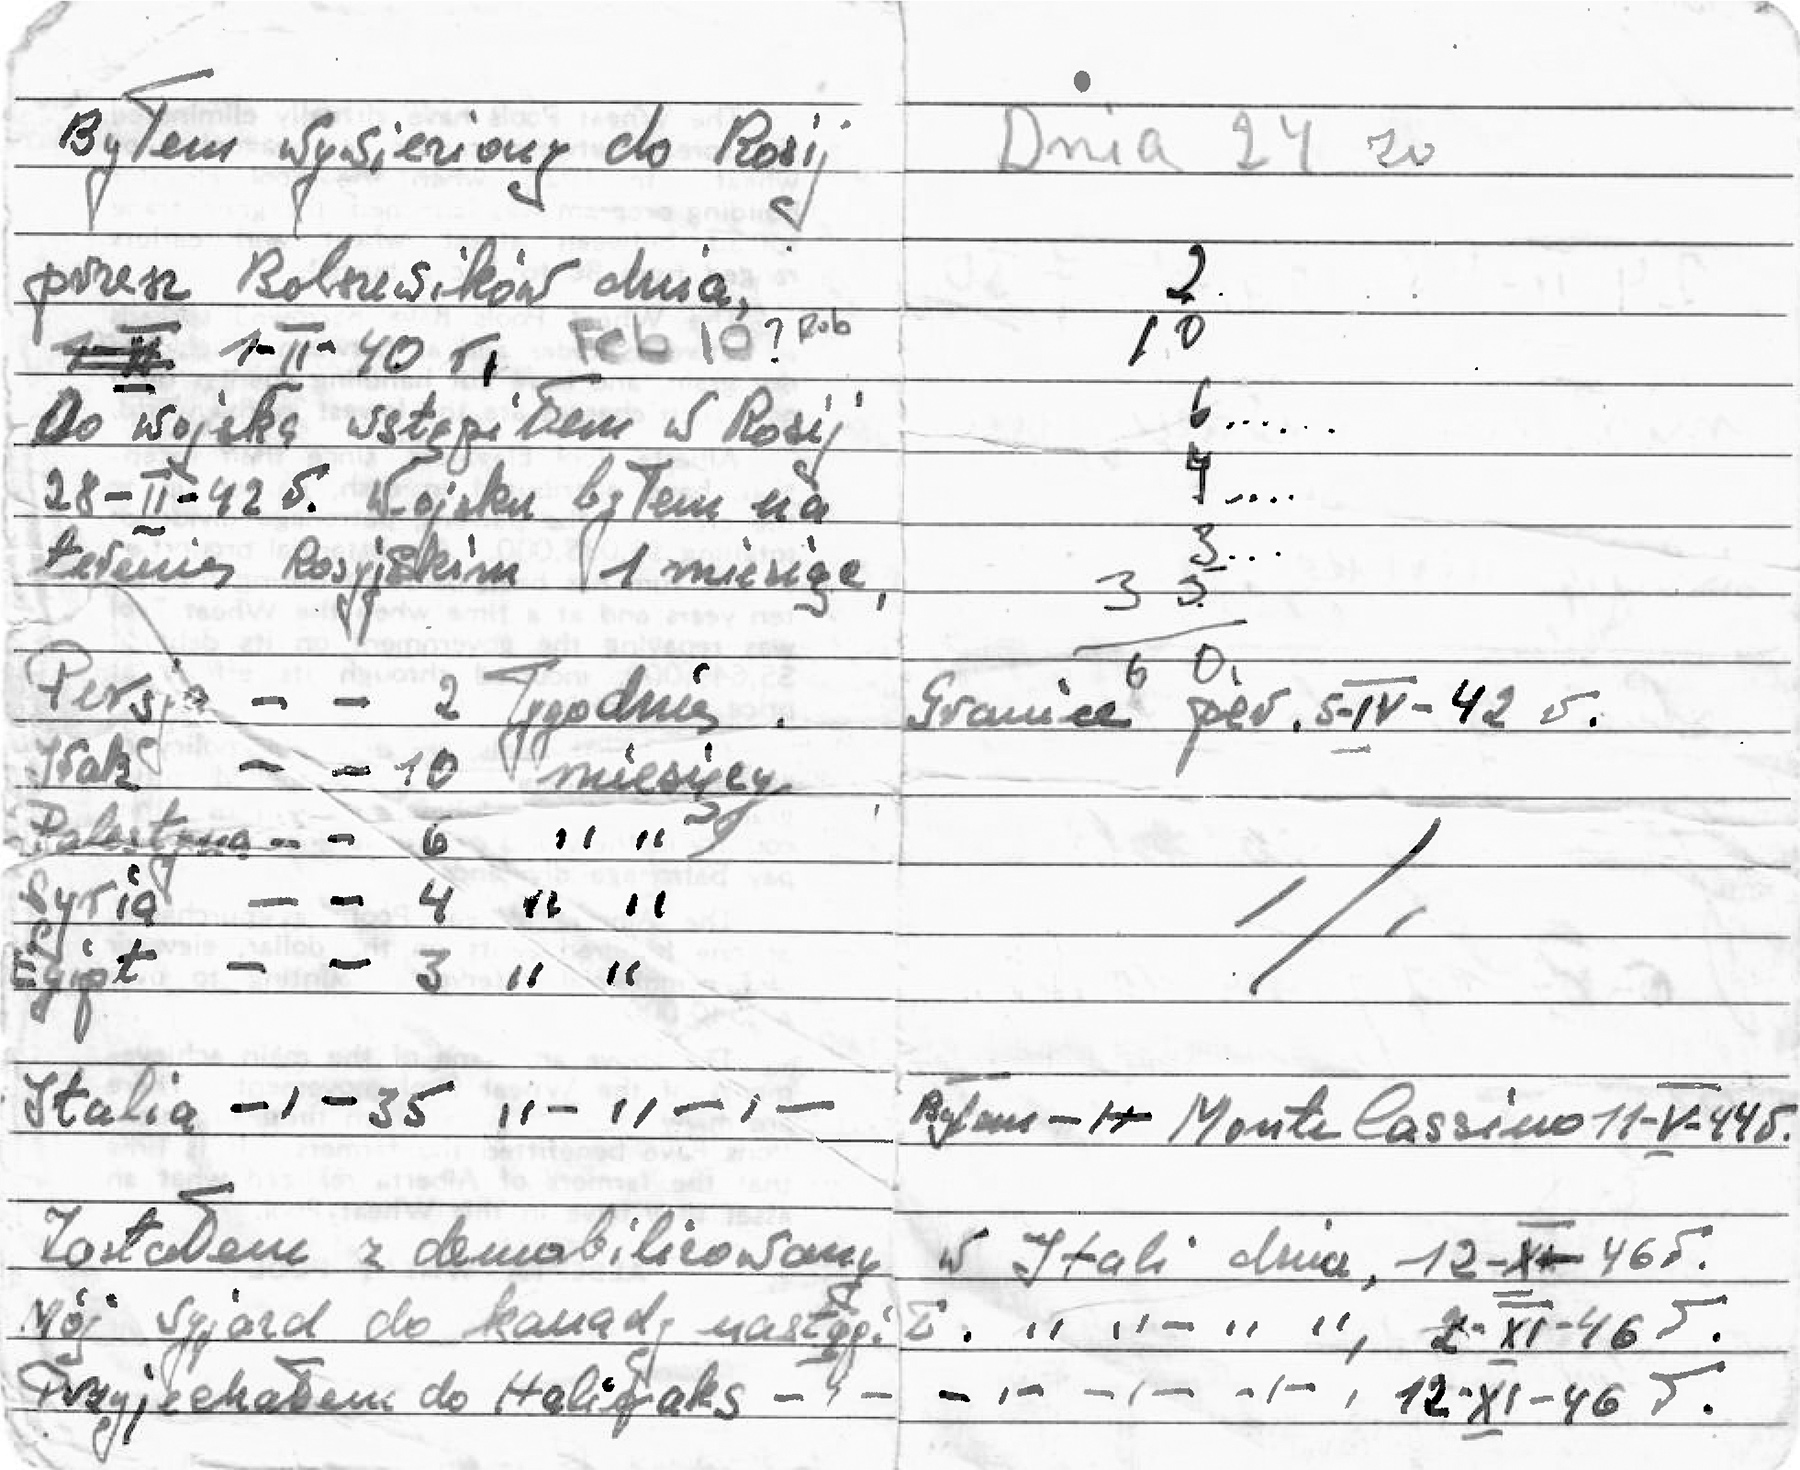 Byłem wywieziony do Rosij
przez Bolszewików dnia,
1-II-40 r, Feb 10? Rob
Do wojska wstąpiłem w Rosij
28-II-42 r. Wojsku byłem na
terenie Rosyjskim 1 miesiąc,
Persja - - 2 Tygodnie.
Irak - - 10 miesięcy
Palestyna - - 6 " "
Syria - - 4 " "
Egipt - - 3 " "
Italia -'- 35 " - " -'-
Zostałem z demobilizowany
Mój wyjazd do kanady nastąpi
Przyjechałem do Halifaks - " -
Dnia 24 20
2
10
6......
4....
3...
35
60.
Granice per. 5-IV-42 r.
Byłem - Monte Cassino 11-V-44 r.
w Itali dnia, 12-XI-46 r.
ł. " " - " ", 2-XI-46 r.
- '- -'- -'- , 12-XI-46 r.